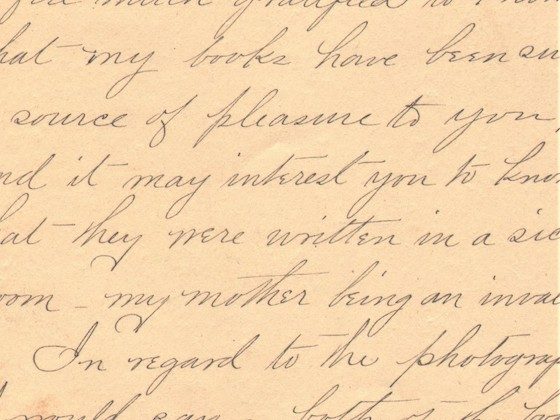 much gratified to
hat my books have been su
source of pleasure to you
nd it may interest you to know
hat they were written in a sic
oom - my mother being an inva
In regard to the photograp
would say - both of the